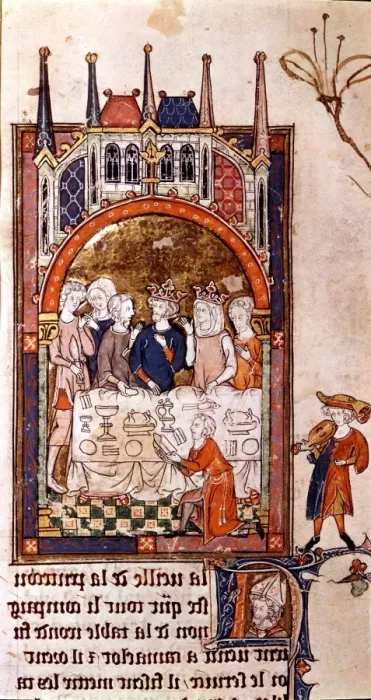 A la ueille de la pentecou
ste qñt tout li compaig
non de la table ronde fu
rent uenu a camaalot ⁊ il orent
oi le seruice ⁊ il fisent metre les ta